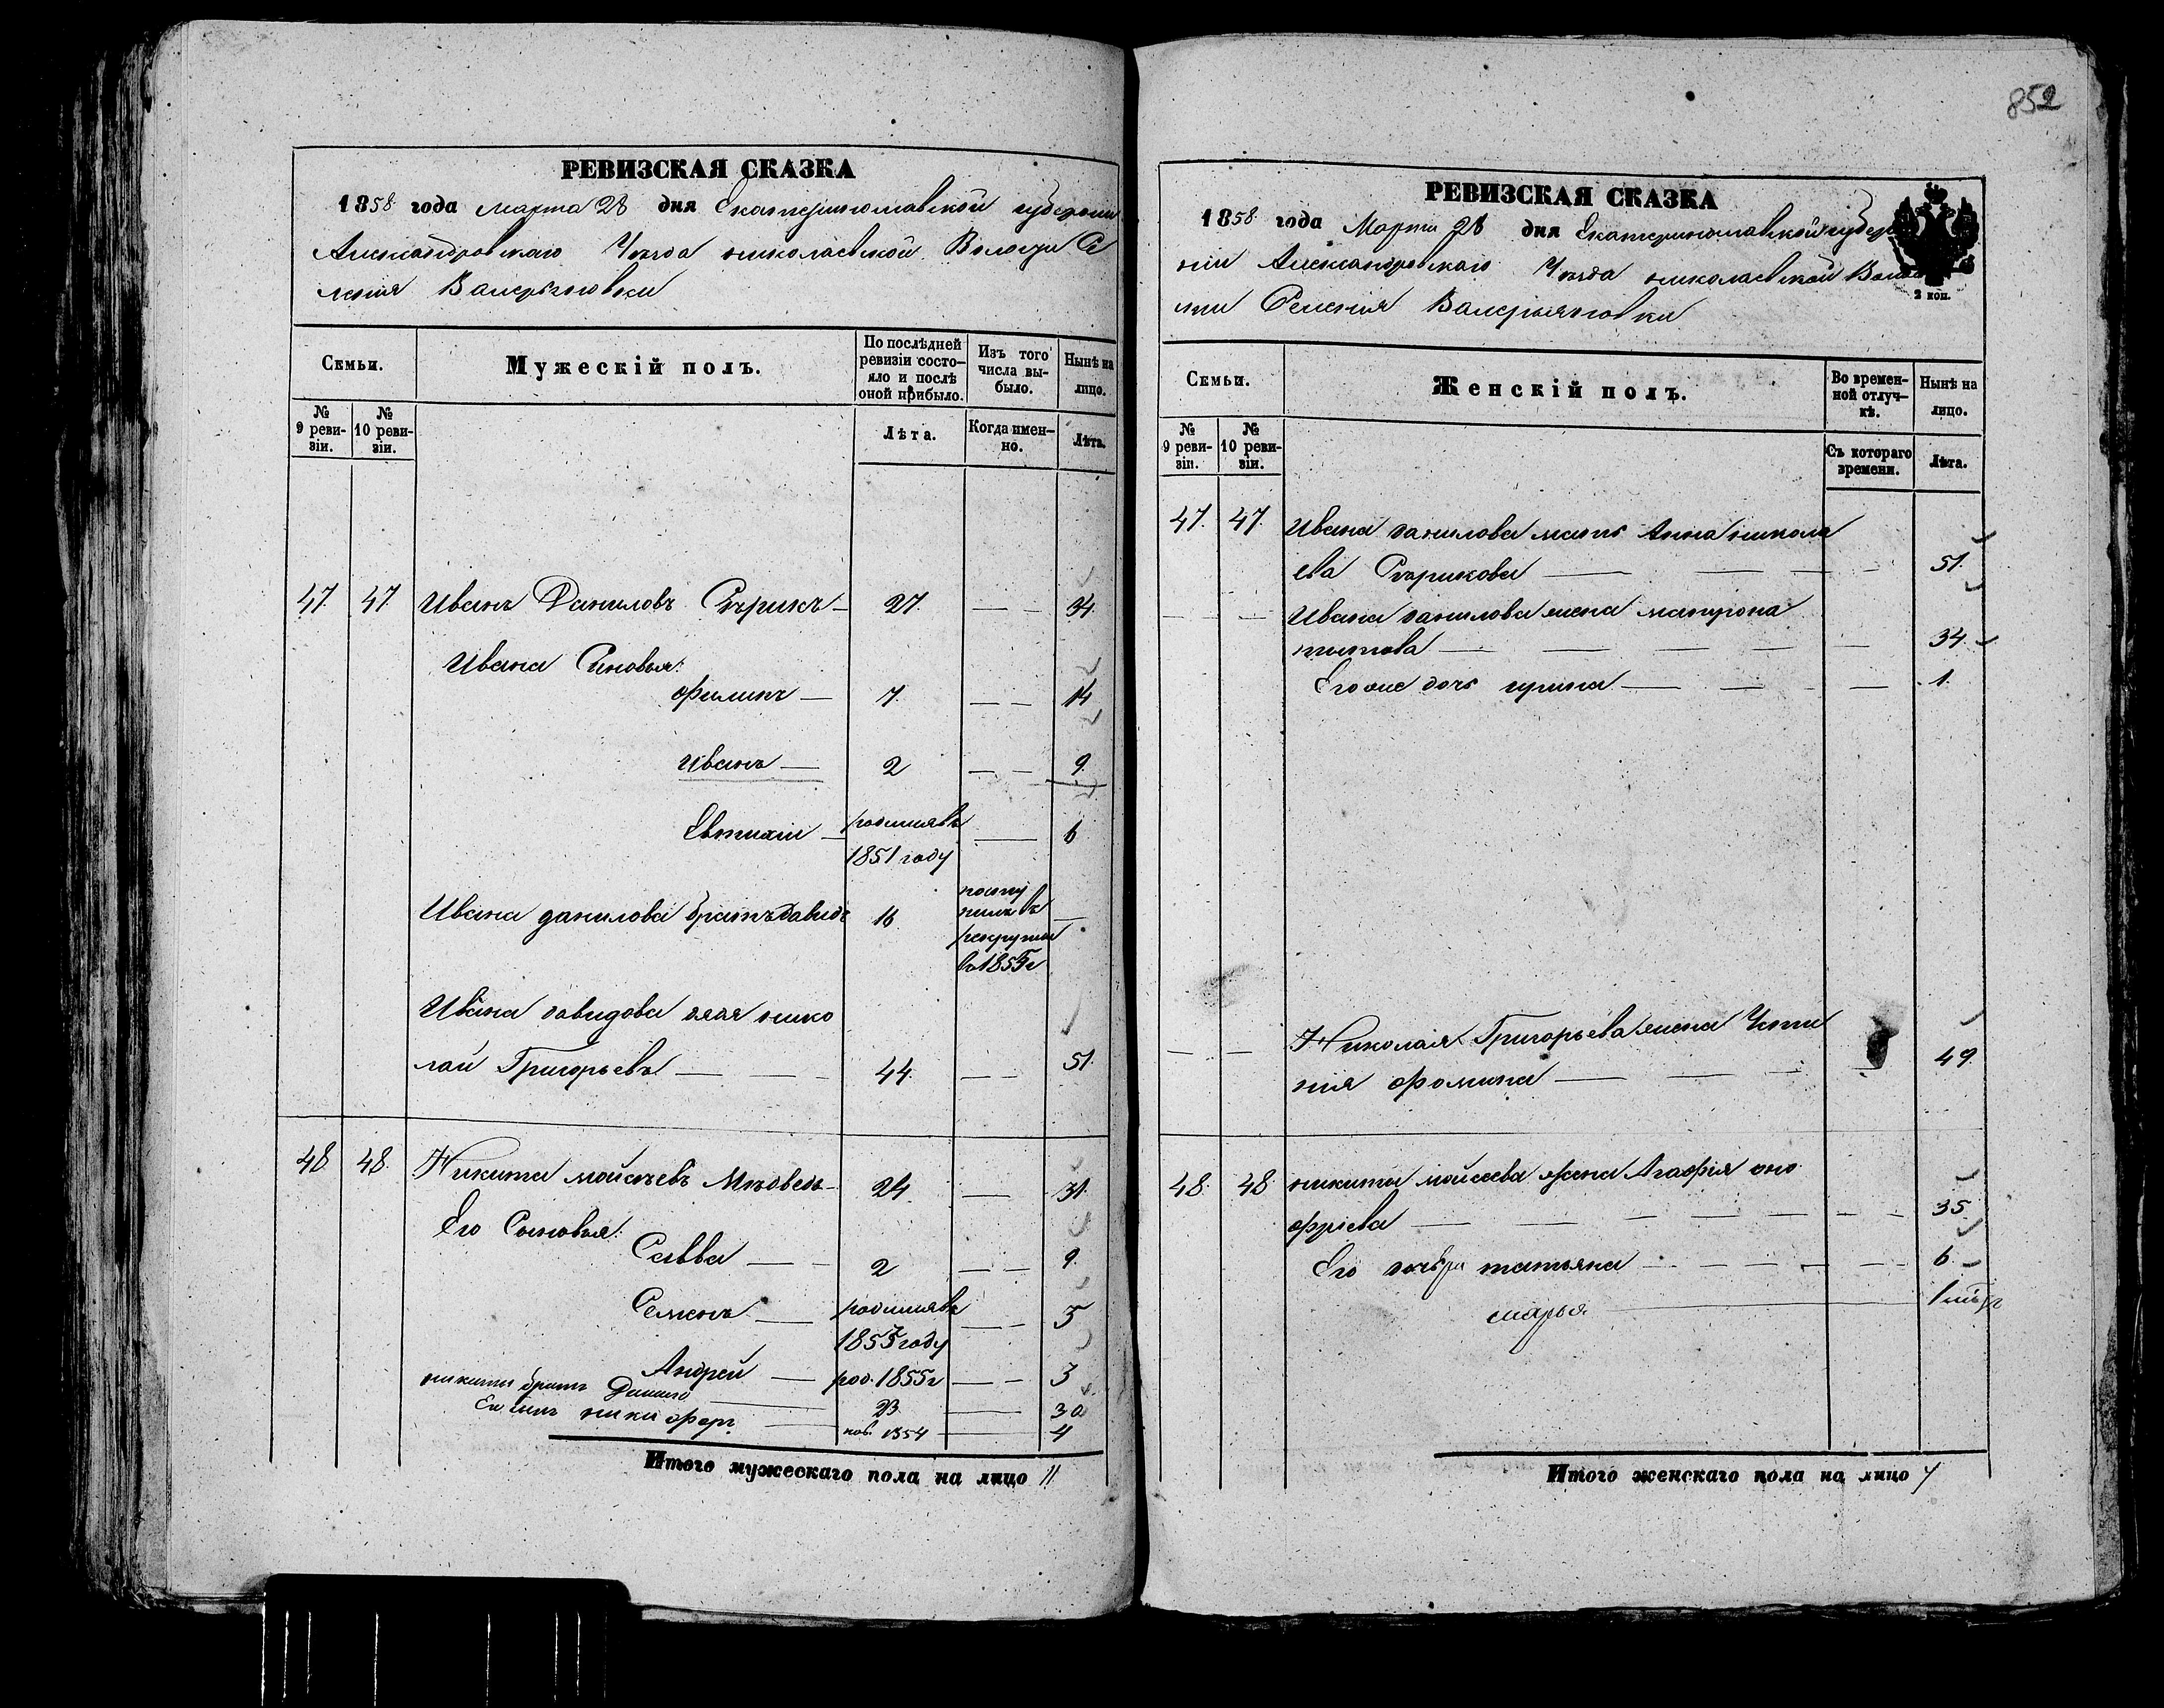 852
РЕВИЗСКАЯ СКАЗКА
1858 года марта 28 дня Екатеринославской губернии
Александровскаго Уѣзда николаевской Волости Се
ленія Валерьяновки
Семьи.
Мужескій полъ.
По послѣдней ревизіи состо–яло и послѣ оной прибыло.
Изъ того числа вы–было.
Нынѣ на лицо.
№ 9 реви–зіи.
№ 10 реви–зіи.
Лѣта.
Когда имен–но.
Лѣта.
47. 47. Иванъ Даниловъ Сѣрикъ — 27. — — 34
Ивана Сыновья:
Филипъ — 7. — — 14
Иванъ — 2 — — 9.
Евтихій — родился въ 1851 году — 6
Ивана данилова братъ давидъ 16. посту
пилъ въ —
рекруты
въ 1855 г
Ивана давидова дядя нико
лай Григорьевъ — — — 44. — — 51.
48 48. Никита мойсѣевъ Мѣдведь — 24. — 31.
Его Сыновья:
Савва — — 2 — — 9.
Семенъ — родился въ — — 5
1853 году
Андрей — род. 1855 г — — 3
никиты братъ Данило — 23 — 30
Ев сынъ никифоръ — 1854 — 4
Итого мужескаго пола на лицо 11
РЕВИЗСКАЯ СКАЗКА
1858 года Марта 28 дня Екатеринославской губер
ніи Александровскаго Уѣзда николаевской Воло
сти Селенія Валерьяновки
2 коп.
Семьи.
Женскій полъ.
Во времен–ной отлуч–кѣ.
Нынѣ на лицо.
№ 9 реви–зіи.
№ 10 реви–зіи.
Съ котораго времени.
Лѣта.
47. 47. Ивана данилова мать Анна никола
ева Сѣрикова — — — — 51.
— — Ивана данилова жена матрона
— — — — 34.
Егоже дочь ирина — — — — 1.
— — Николая Григорьева жена Усти
нія фомина — — — — 49.
48. 48. никиты мойсеева жена Агафія оно
фріева — — — — — — 35
Его дочьри татьяна — — — — 6
марья — 1
Итого женскаго пола на лицо 7